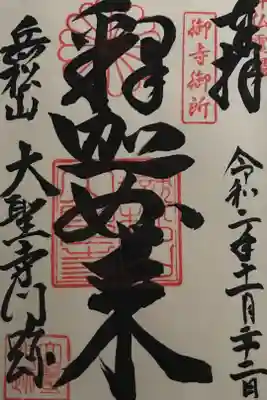 奉拝
御寺御所
令和二年十一月二十二日
釋迦如来
岳松山
大聖寺門跡